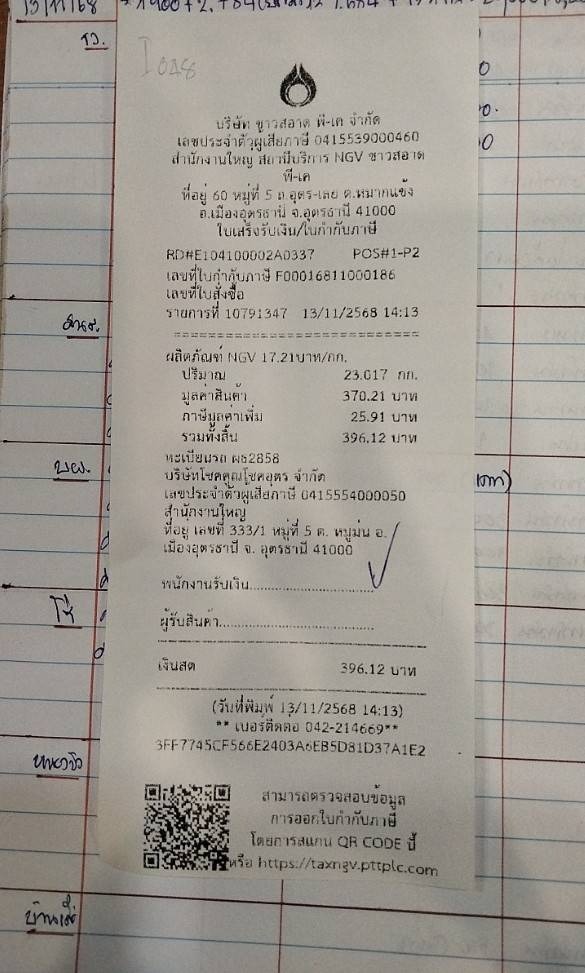 13/11/68
รว.
I 048
บริษัท ขาวสอาด พี-เค จำกัด
เลขประจำตัวผู้เสียภาษี 0415539000460
สำนักงานใหญ่ สถานีบริการ NGV ขาวสอาด
พี-เค
ที่อยู่ 60 หมู่ที่ 5 ถ.อุดร-เลย ต.หมากแข้ง
อ.เมืองอุดรธานี จ.อุดรธานี 41000
ใบเสร็จรับเงิน/ใบกำกับภาษี
RD#E104100002A0337 POS#1-P2
เลขที่ใบกำกับภาษี F00016811000186
เลขที่ใบสั่งซื้อ
รายการที่ 10791347 13/11/2568 14:13
ผลิตภัณฑ์ NGV 17.21บาท/กก.
ปริมาณ 23.017 กก.
มูลค่าสินค้า 370.21 บาท
ภาษีมูลค่าเพิ่ม 25.91 บาท
รวมทั้งสิ้น 396.12 บาท
ทะเบียนรถ ผธ2858
บริษัทโชคคูณโชคอุดร จำกัด
เลขประจำตัวผู้เสียภาษี 0415554000050
สำนักงานใหญ่
ที่อยู่ เลขที่ 333/1 หมู่ที่ 5 ต. หมูม่น อ.
เมืองอุดรธานี จ. อุดรธานี 41000
พนักงานรับเงิน..............................
ผู้รับสินค้า.....................................
เงินสด 396.12 บาท
(วันที่พิมพ์ 13/11/2568 14:13)
** เบอร์ติดต่อ 042-214669**
3FF7745CF566E2403A6EB5D81D37A1E2
สามารถตรวจสอบข้อมูล
การออกใบกำกับภาษี
โดยการสแกน QR CODE นี้
หรือ https://taxngv.pttplc.com